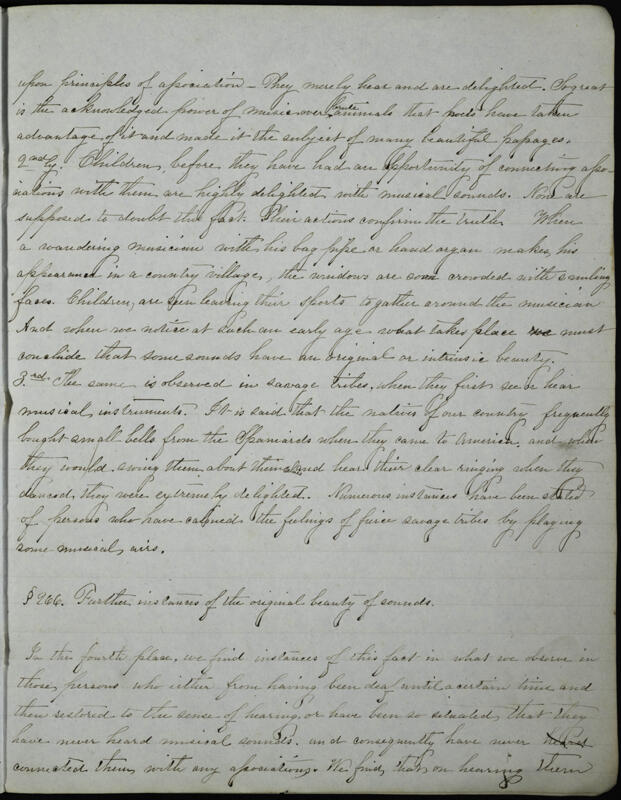 upon principles of association - They merely hear and are delighted. So great
is the acknowledged power of music over brute animals that poets have taken
advantage of it and made it the subject of many beautiful passages.
2ndly. Children, before they have had an opportunity of connecting asso-
ciations with them are highly delighted with musical sounds. None are
supposed to doubt this fact. Their actions confirm the truth When
a wandering musician with his bag pipe or hand organ makes his
appearance in a country village, the windows are soon crowded with smiling
faces. Children, are seen leaving their sports to gather around the musician
And when we notice at such an early age what takes place we must
conclude that some sounds have an original or intrinsic beauty.
3rd. The same is observed in savage tribes, when they first see or hear
musical instruments. It is said that the natives of our country frequently
bought small bells from the Spaniards when they came to America, and when
they would swing them about them and hear their clear ringing when they
danced, they were extremely delighted. Numerous instances have been stated
of persons who have calmed the feelings of fierce savage tribes by playing
some musical airs.
§ 266. Further instances of the original beauty of sounds.
In the fourth place, we find instances of this fact in what we observe in
those persons who either from having been deaf until a certain time and
then restored to the sense of hearing, or have been so situated that they
have never heard musical sounds, and consequently have never
connected them with any associations. We find, that on hearing them